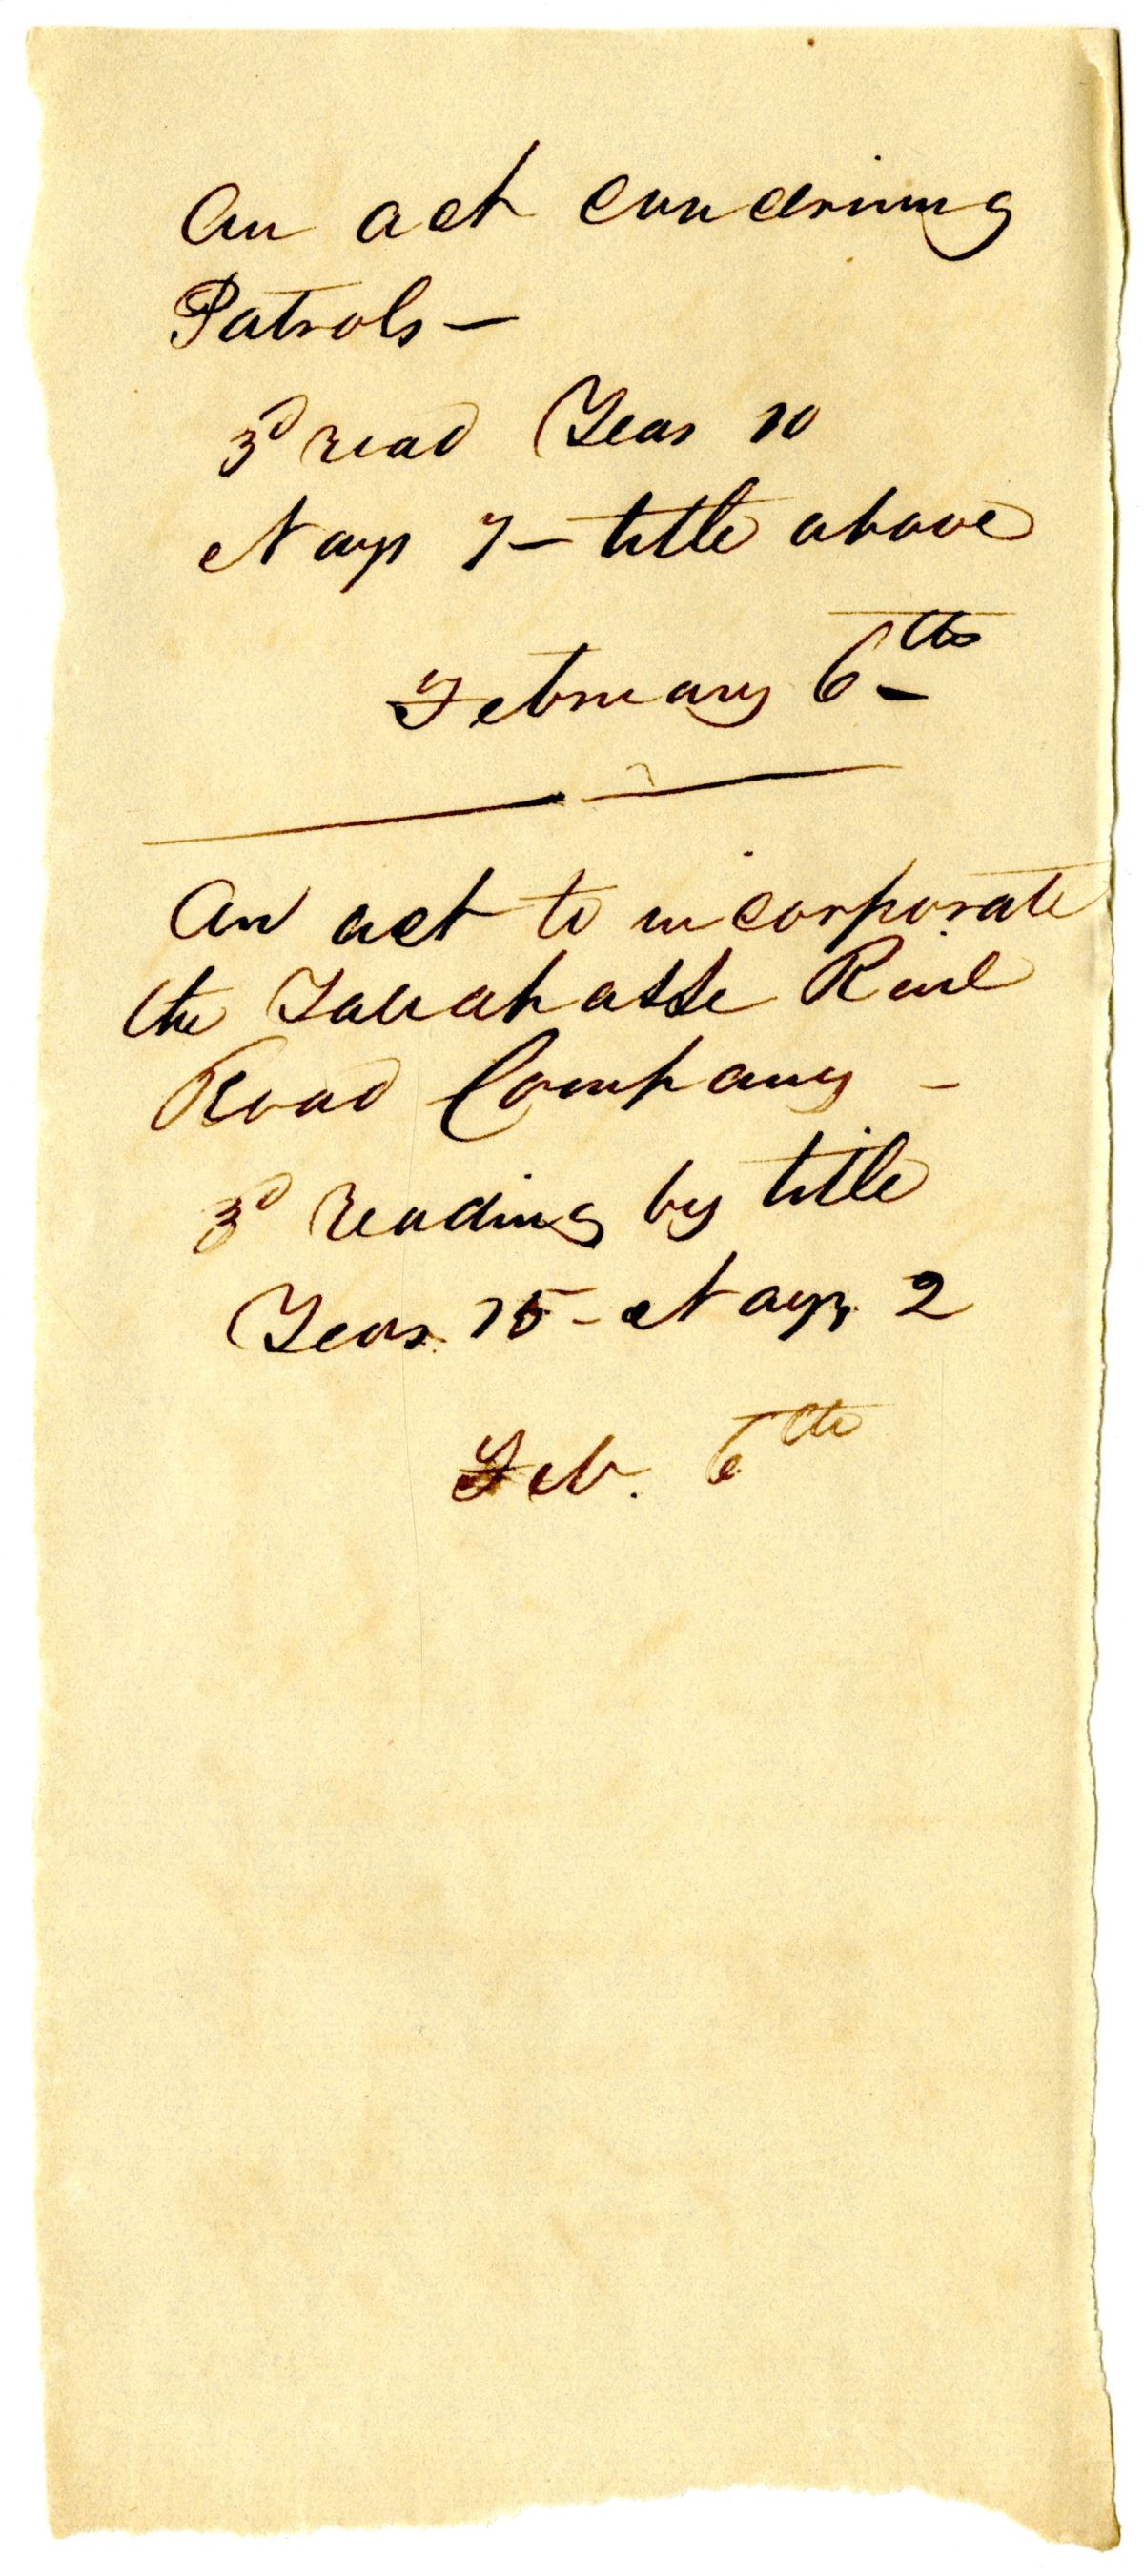 An act concerning
Patrols —
3d read Yeas 10
Nays 7 — title above
February 6th —
An act to incorporate
the Tallahasse Rail
Road Company —
3d reading by title
Yeas 15 — Nays 2
Feb. 6th